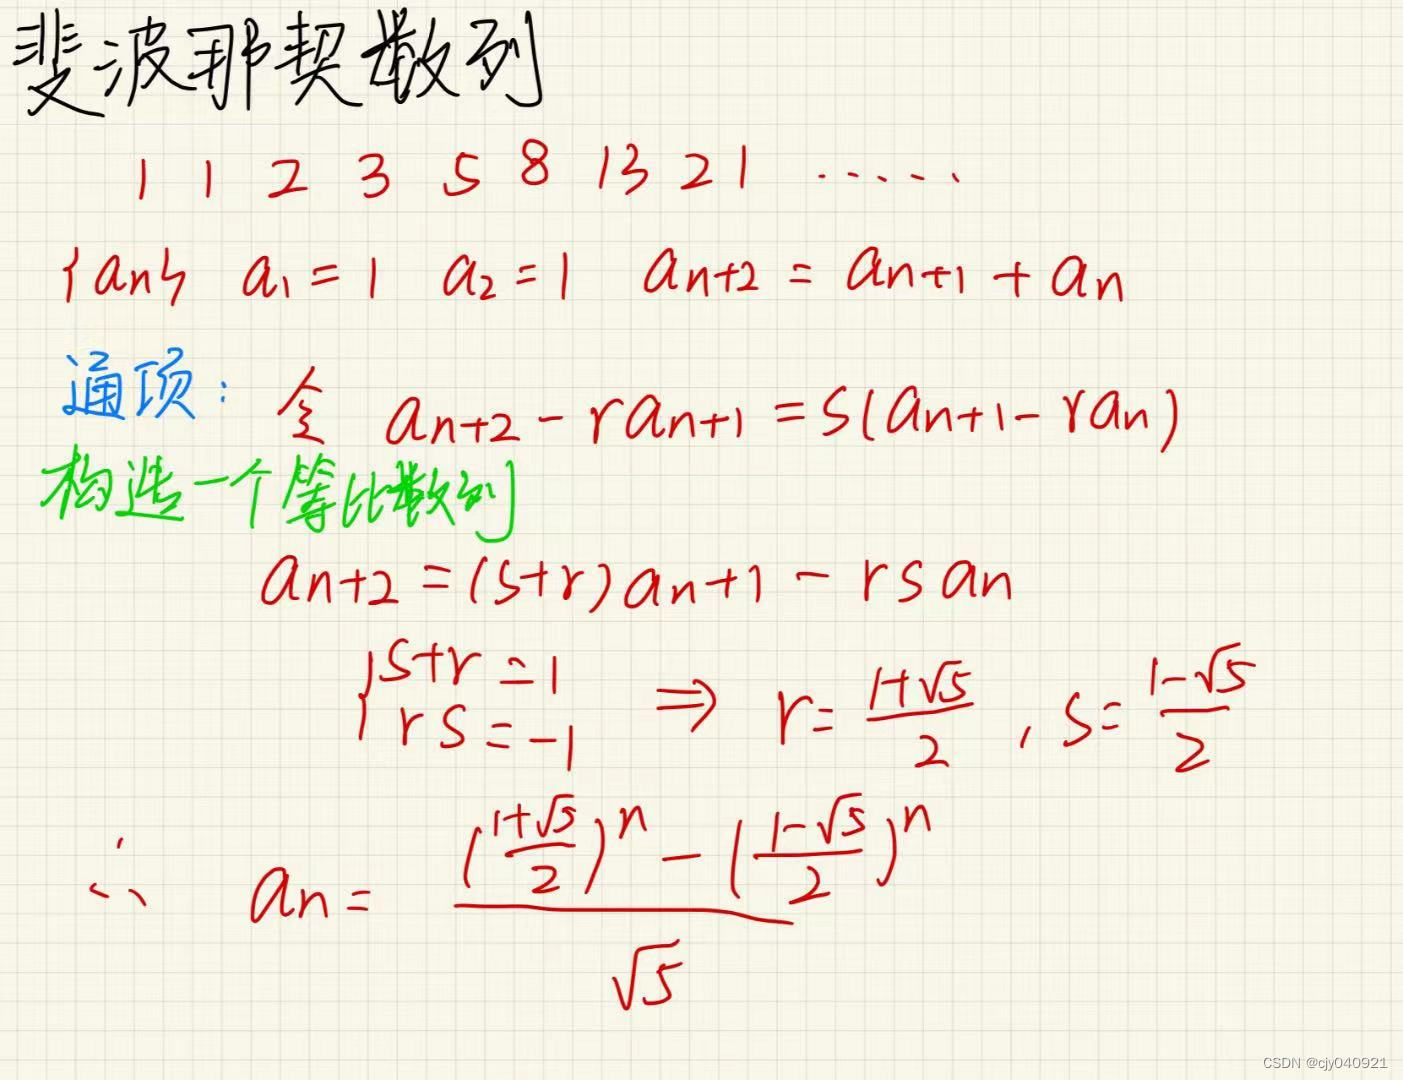 斐波那契数列
1 1 2 3 5 8 13 21 ······
{an} a₁=1 a₂=1 an+2 = an+1 + an
通项: 令 an+2 - ran+1 = s(an+1 - ran)
构造一个等比数列
an+2 = (s+r)an+1 - rsan
{s+r=1 rs=-1 ⇒ r=(1+√5)/2 , s=(1-√5)/2
∴ an = (((1+√5)/2)ⁿ - ((1-√5)/2)ⁿ)/√5
CSDN @cjy040921